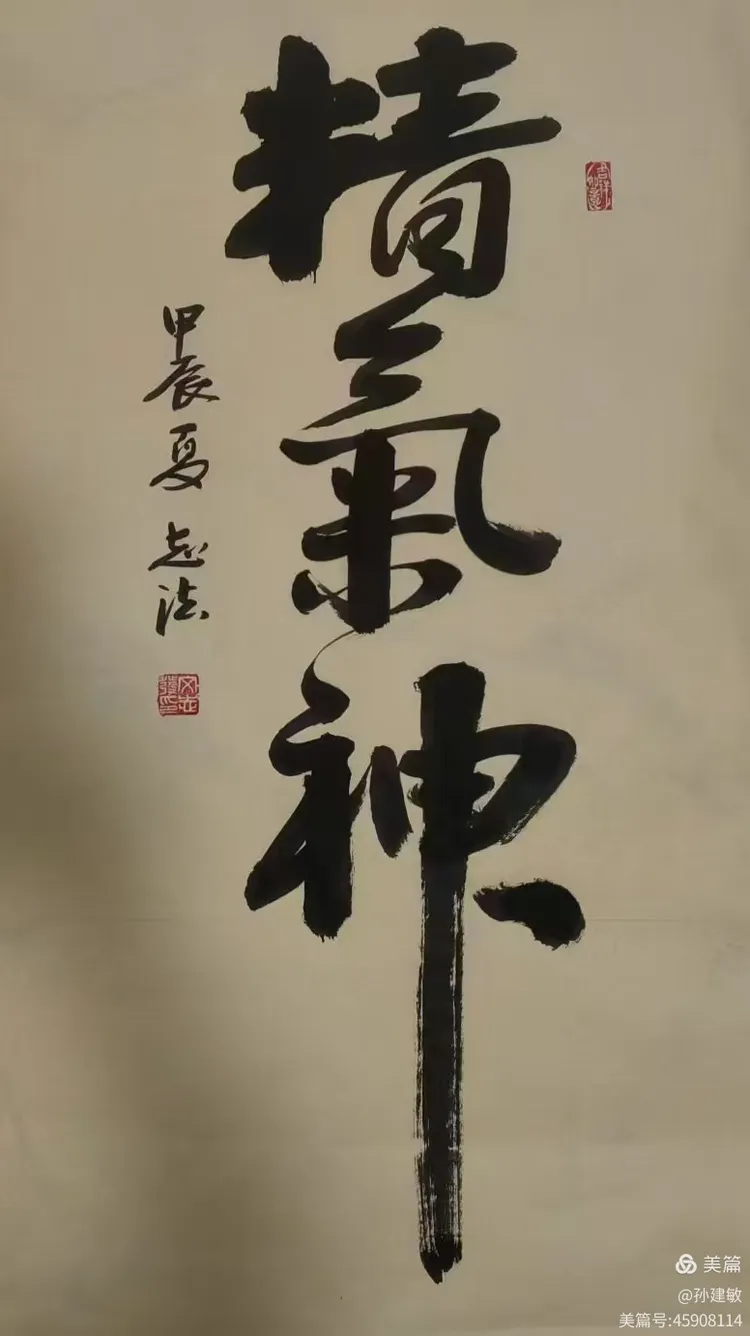 精氣神
甲辰夏 志法
美篇
@孙建敏
美篇号:45908114